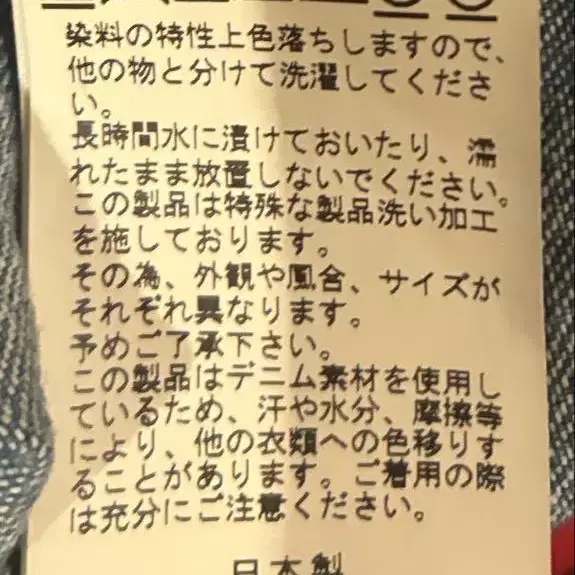 染料の特性上色落ちしますので、
他の物と分けて洗濯してくださ
い。
長時間水に漬けておいたり、濡
れたまま放置しないでください。
この製品は特殊な製品洗い加工
を施しております。
その為、外観や風合、サイズが
それぞれ異なります。
予めご了承下さい。
この製品はデニム素材を使用し
ているため、汗や水分、摩擦等
により、他の衣類への色移りす
ることがあります。ご着用の際
は充分にご注意ください。
日本製